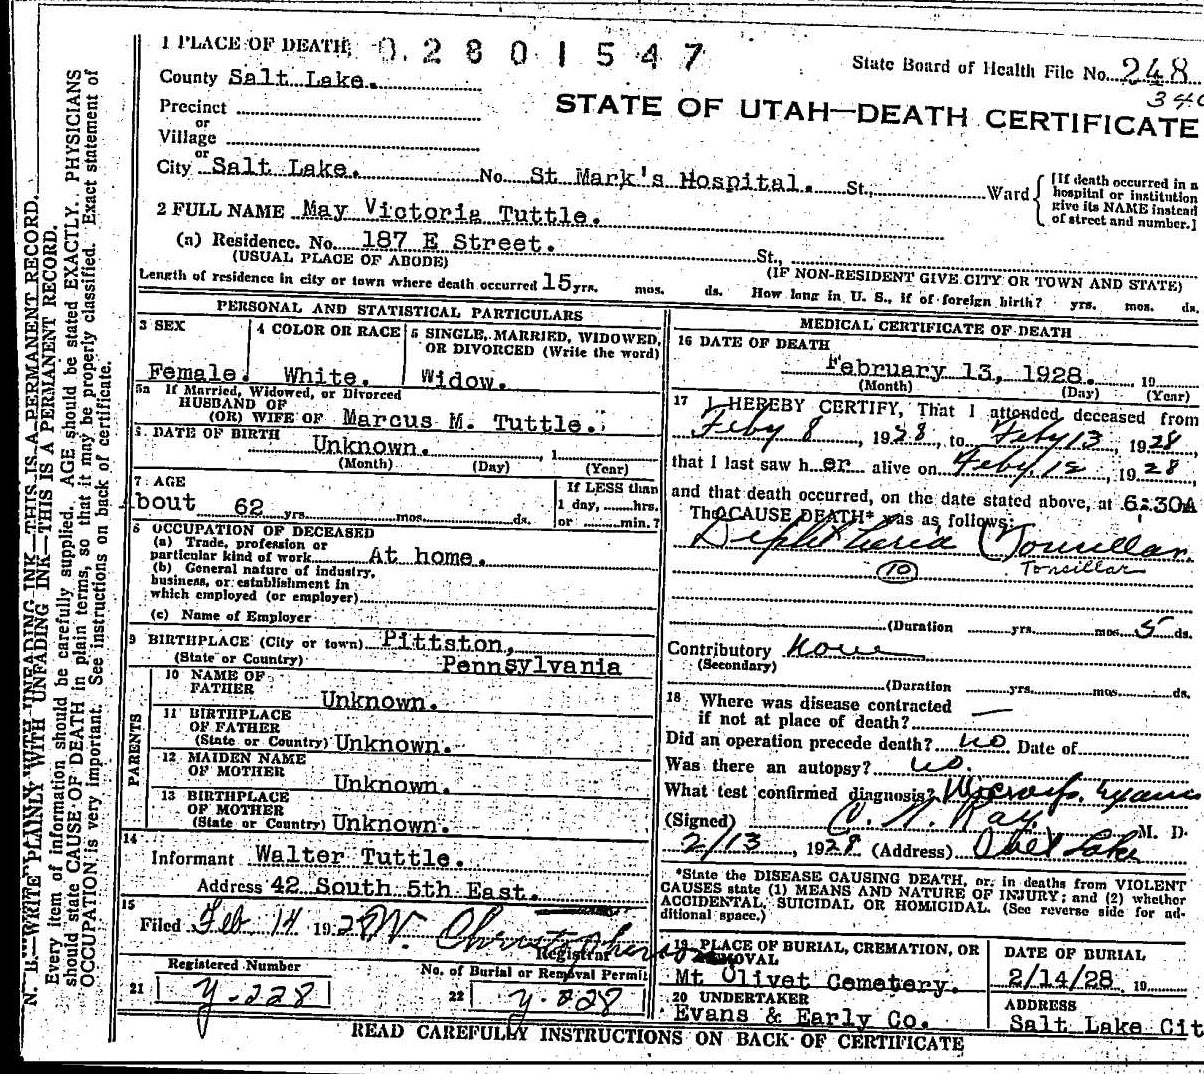 1 PLACE OF DEATH, 0.2801547
State Board of Health File No. 248
340
County Salt Lake.
STATE OF UTAH—DEATH CERTIFICATE
Precinct
or
Village
or
City Salt Lake. No. St Mark's Hospital. St., Ward
[If death occurred in a hospital or institution give its NAME instead of street and number.]
2 FULL NAME May Victoria Tuttle.
(a) Residence. No. 187 E Street. St.,
(USUAL PLACE OF ABODE) (IF NON-RESIDENT GIVE CITY OR TOWN AND STATE)
Length of residence in city or town where death occurred 15 yrs. mos. ds. How long in U. S., if of foreign birth? yrs. mos. ds.
PERSONAL AND STATISTICAL PARTICULARS
3 SEX
Female.
4 COLOR OR RACE
White.
5 SINGLE, MARRIED, WIDOWED, OR DIVORCED (Write the word)
Widow.
5a If Married, Widowed, or Divorced
HUSBAND OF
(OR) WIFE OF Marcus M. Tuttle.
DATE OF BIRTH
Unknown. , 1
(Month) (Day) (Year)
7 AGE
bout 62 yrs. mos. ds.
If LESS than
1 day, hrs.
or min.?
8 OCCUPATION OF DECEASED
(a) Trade, profession or
particular kind of work At home.
(b) General nature of industry,
business, or establishment in
which employed (or employer)
(c) Name of Employer
9 BIRTHPLACE (City or town) Pittston,
(State or Country) Pennsylvania
PARENTS
10 NAME OF
FATHER Unknown.
11 BIRTHPLACE
OF FATHER
(State or Country) Unknown.
12 MAIDEN NAME
OF MOTHER
Unknown.
13 BIRTHPLACE
OF MOTHER
(State or Country) Unknown.
14
Informant Walter Tuttle.
Address 42 South 5th East.
15
Filed Feb 14 192 W. Christopherson
Registrar
Registered Number
21 y-228
No. of Burial or Removal Permit
22 y-228
MEDICAL CERTIFICATE OF DEATH
16 DATE OF DEATH
February 13, 1928. 19
(Month) (Day) (Year)
17 I HEREBY CERTIFY, That I attended deceased from
Feby 8, 1928, to Feby 13, 1928,
that I last saw h er alive on Feby. 12, 1928,
and that death occurred, on the date stated above, at 6:30A
The CAUSE DEATH* was as follows:
Diphtheria (Tonsillar
(10) Tonsillar
(Duration yrs. mos. 5 ds.
Contributory None
(Secondary)
(Duration yrs. mos. ds.
18 Where was disease contracted
if not at place of death? —
Did an operation precede death? no Date of
Was there an autopsy? no.
What test confirmed diagnosis?
(Signed) C. N. Ray M. D.
2/13, 1928 (Address) Salt Lake
*State the DISEASE CAUSING DEATH, or, in deaths from VIOLENT
CAUSES state (1) MEANS AND NATURE OF INJURY; and (2) whether
ACCIDENTAL, SUICIDAL OR HOMICIDAL. (See reverse side for ad-
ditional space.)
19 PLACE OF BURIAL, CREMATION, OR
Mt Olivet Cemetery.
DATE OF BURIAL
2/14/28 19
20 UNDERTAKER
Evans & Early Co.
ADDRESS
Salt Lake Cit
READ CAREFULLY INSTRUCTIONS ON BACK OF CERTIFICATE
N. B.—WRITE PLAINLY WITH UNFADING INK—THIS IS A PERMANENT RECORD.
Every item of information should be carefully supplied. AGE should be stated EXACTLY. PHYSICIANS
should state CAUSE OF DEATH in plain terms, so that it may be properly classified. Exact statement of
OCCUPATION is very important. See instructions on back of certificate.